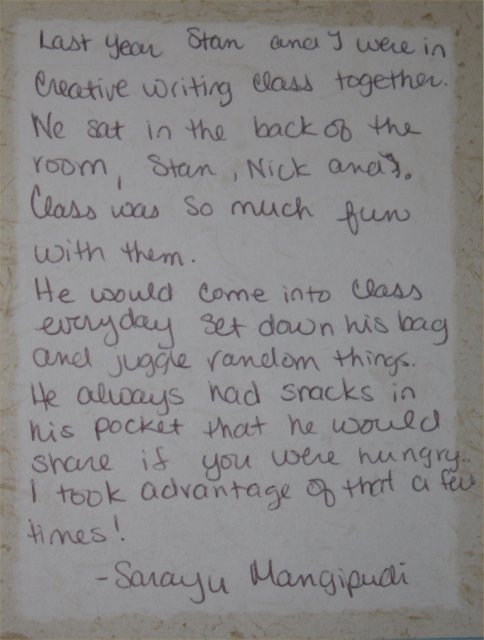 Last year Stan and I were in
Creative writing class together.
We sat in the back of the
room, Stan, Nick and I.
Class was so much fun
with them.
He would come into class
everyday set down his bag
and juggle random things.
He always had snacks in
his pocket that he would
share if you were hungry..
I took advantage of that a few
times!
-Sarayu Mangipudi